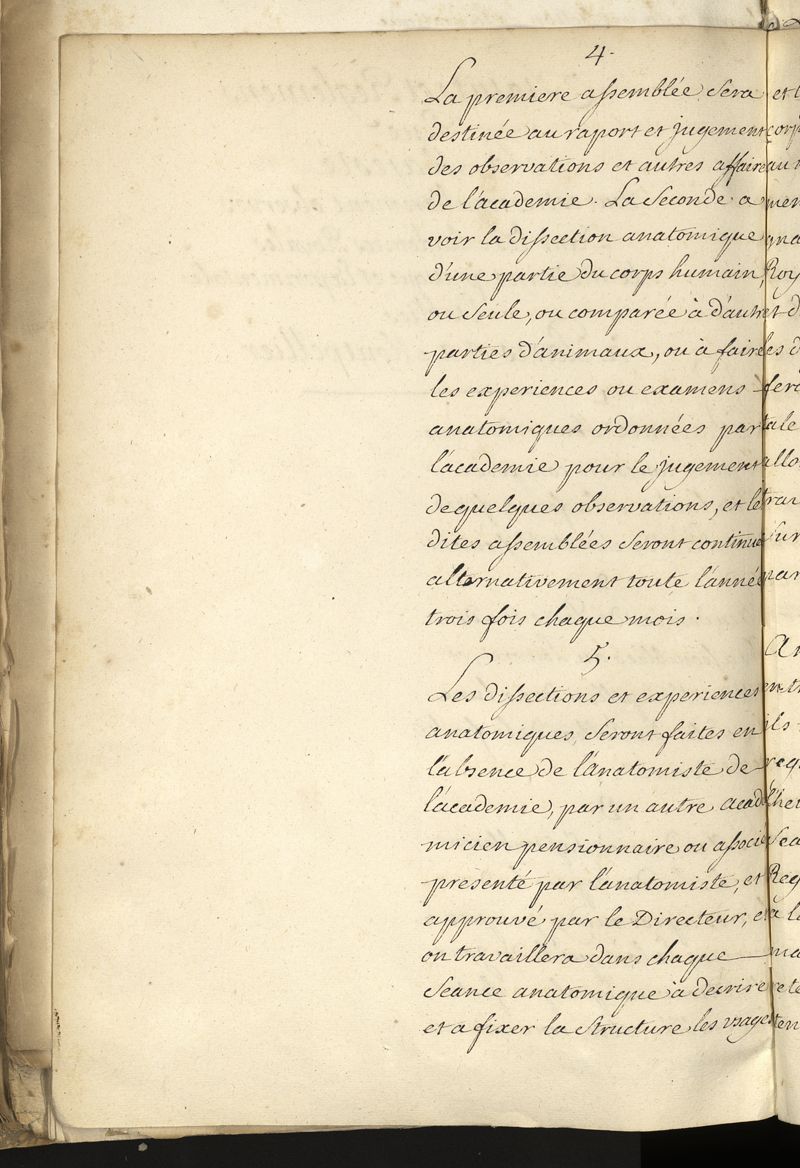 4.
La premiere assemblée sera
destinée au raport et jugement
des observations et autres affaire
de l'academie. La seconde a
voir la dissection anatomique
d'une partie du corps humain,
ou seule, ou comparée à d'autr
parties d'animaux, ou à faire
les experiences ou examens
anatomiques ordonnées par
l'academie pour le jugement
de quelques observations, et le
dites assemblées seront continue
alternativement toute l'année
trois fois chaque mois.
5.
Les dissections et experiences
anatomiques, seront faites en
l'absence de l'anatomiste de
l'academie, par un autre acad
micien pensionnaire ou associ
presenté par l'anatomiste, et
approuvé par le Directeur, et
on travaillera dans chaque
seance anatomique à decrire
et a fixer la structure les usages